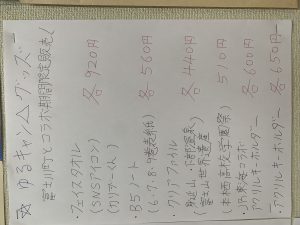 ☆ゆるキャン△グッズ
富士川町でコラボ期間限定販売!
・フェイスタオル 各920円
(SNSアイコン)
・B5ノート 各560円
(6・7・8・9巻表紙)
・クリアファイル 各440円
富士山世界遺産
(本栖高校学園祭) 510円
アクリルキーホルダー 各600円
・アクリルキーホルダー 各650円